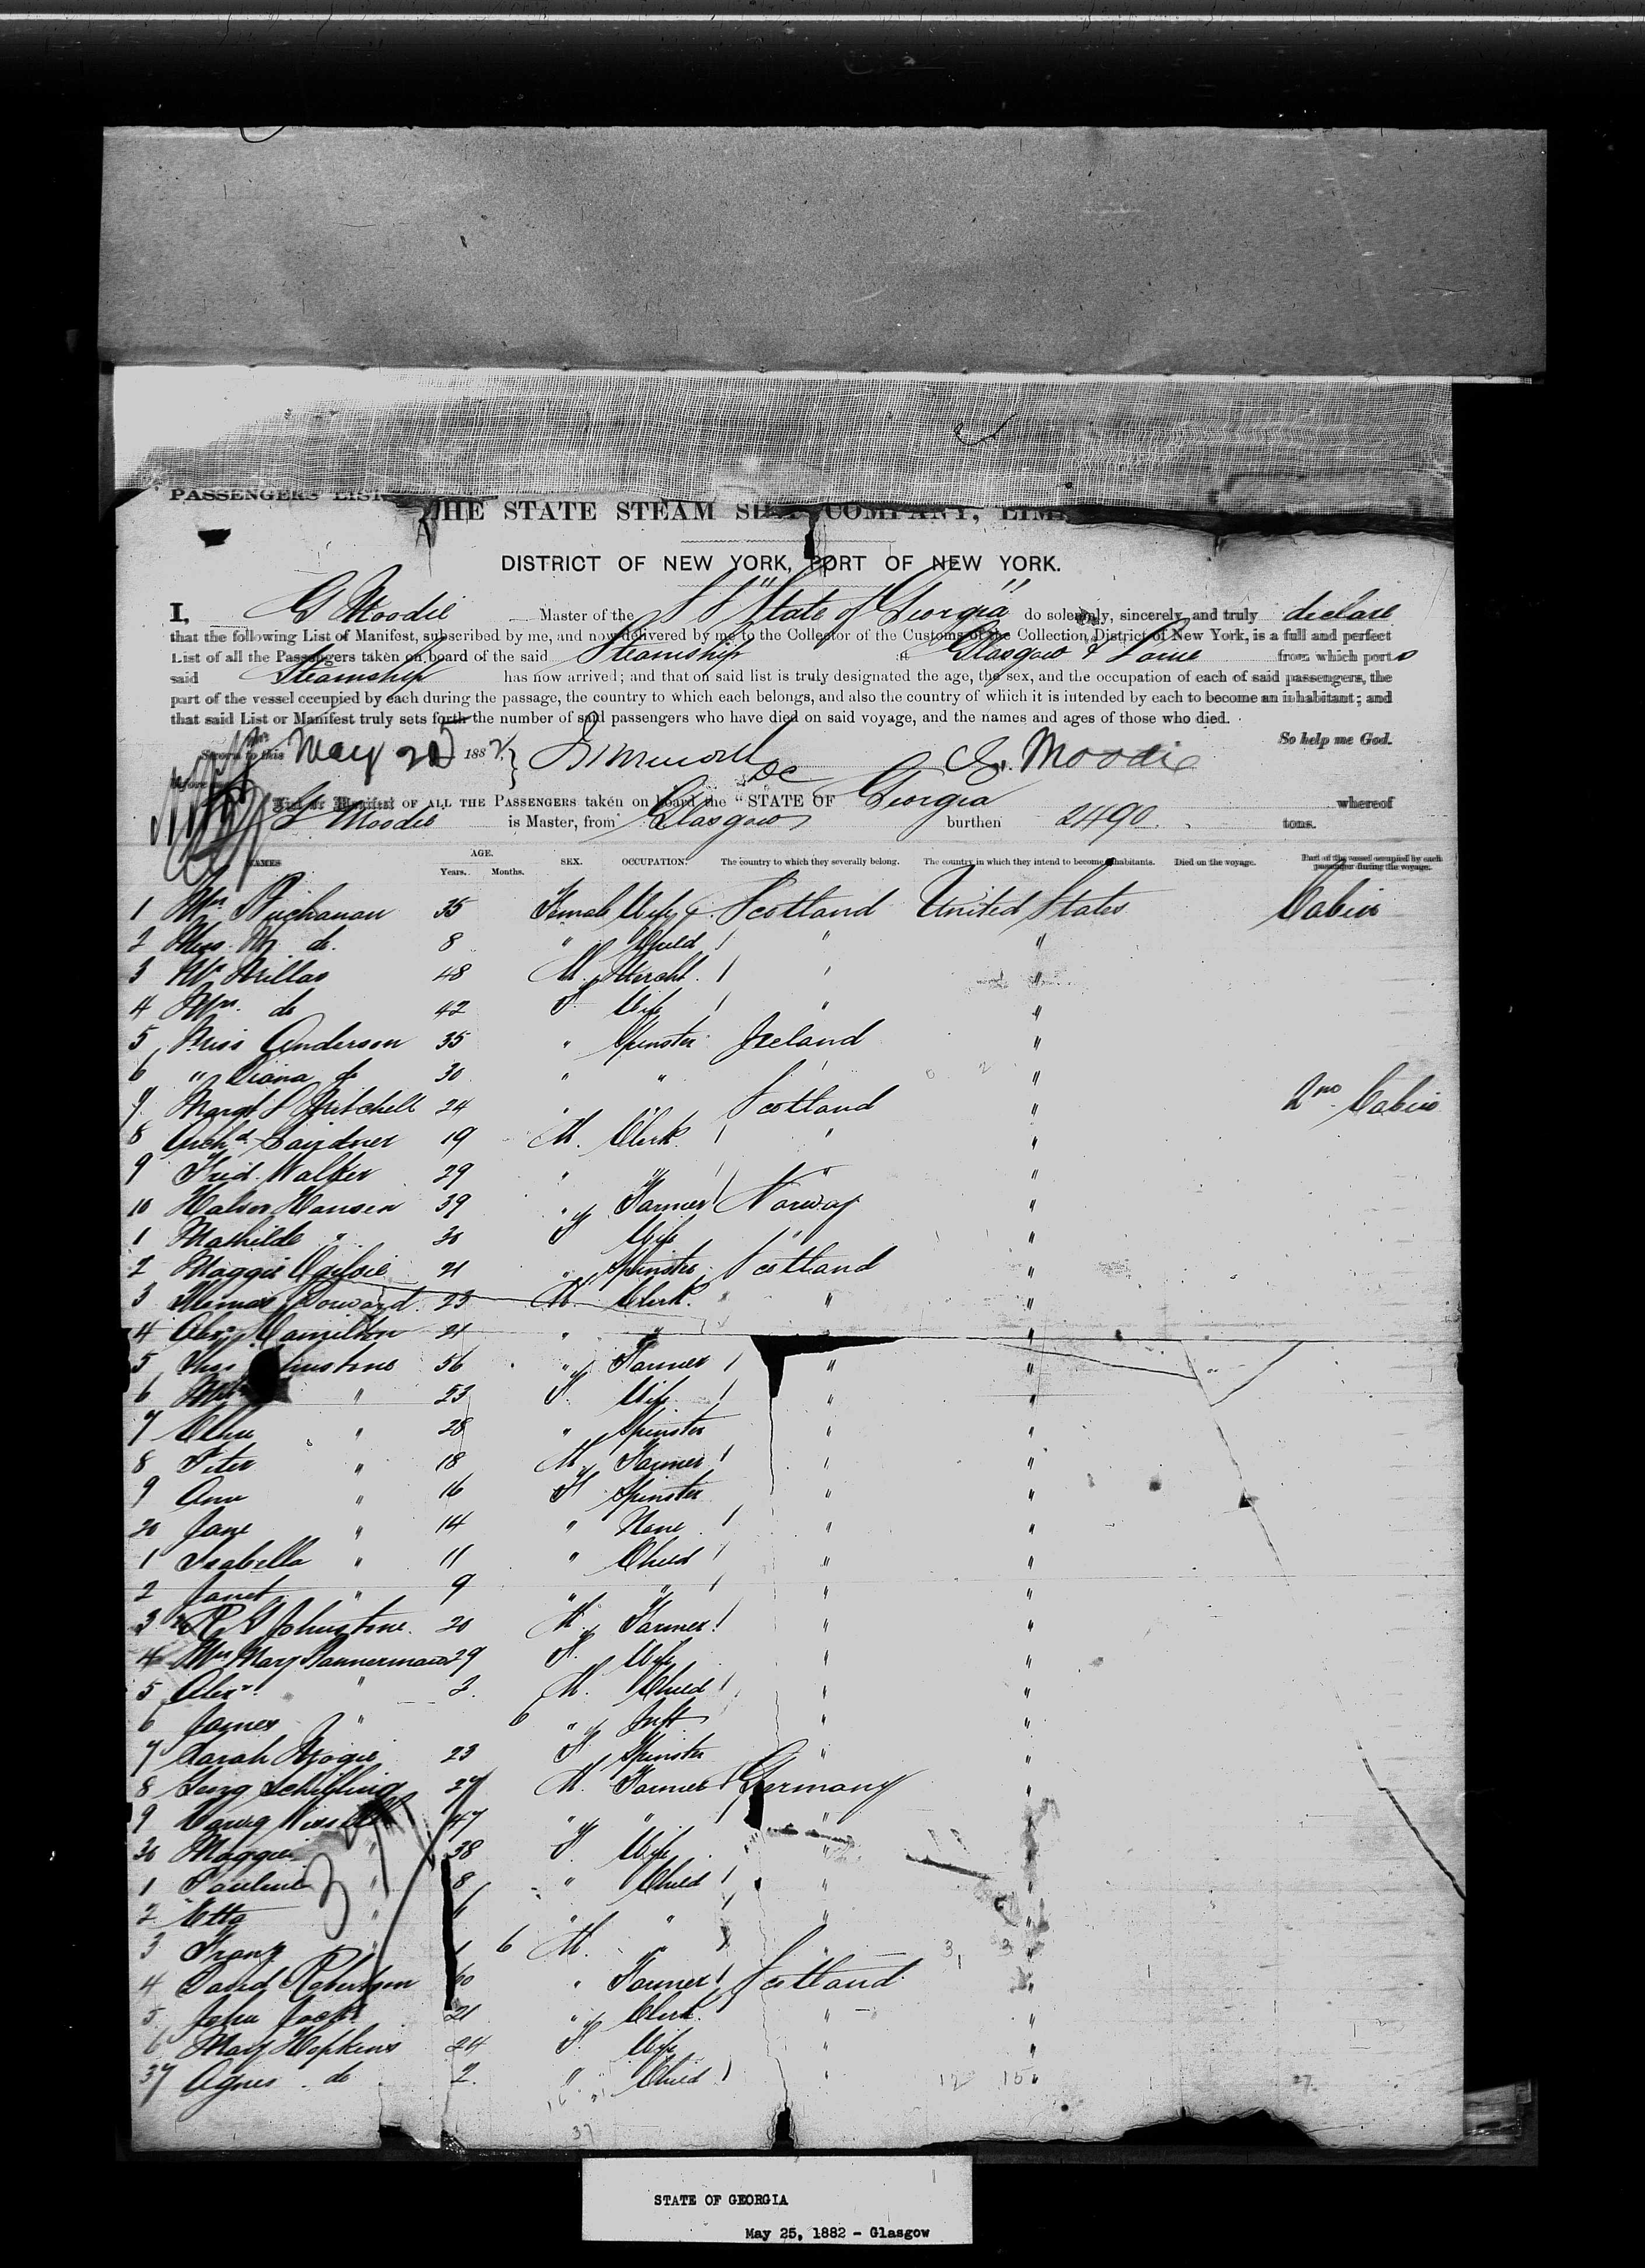 PASSENGERS LIST
THE STATE STEAM SHIP COMPANY, LIM
DISTRICT OF NEW YORK, PORT OF NEW YORK.
I, G Moodie Master of the S S "State of Georgia" do solemnly, sincerely and truly declare
that the following List of Manifest, subscribed by me, and now delivered by me to the Collector of the Customs of the Collection District of New York, is a full and perfect
List of all the Passengers taken on board of the said Steamship at Glasgow & Larne from which ports
said Steamship has now arrived; and that on said list is truly designated the age, the sex, and the occupation of each of said passengers, the
part of the vessel occupied by each during the passage, the country to which each belongs, and also the country of which it is intended by each to become an inhabitant; and
that said List or Manifest truly sets forth the number of said passengers who have died on said voyage, and the names and ages of those who died.
So help me God.
Sworn to this May 25 1882 G. Moodie
before
List or Manifest OF ALL THE PASSENGERS taken on board the "STATE OF Georgia whereof
G Moodie is Master, from Glasgow burthen 2490 tons.
NAMES AGE. Years. Months. SEX. OCCUPATION. The country to which they severally belong. The country in which they intend to become inhabitants. Died on the voyage. Part of the vessel occupied by each passenger during the voyage.
1 Mrs Buchanan 35 Female Wife Scotland United States Cabin
2 Miss M do. 8 " Child " "
3 Mr Millar 48 M. Mercht. " "
4 Mrs. do 42 F Wife " "
5 Miss Anderson 35 " Spinster Ireland "
6 " Diana do 30 " " "
7 Margt S Mitchell 24 " " Scotland " 2nd Cabin
8 Archd Gairdner 19 M. Clerk " "
9 Fred. Walker 29 " " " "
10 Halvor Hansen 39 " Farmer Norway "
1 Mathilde " 30 F Wife " "
2 Maggie Ogilvie 21 " Spinster Scotland "
3 Thomas Dowazd 23 M. Clerk " "
4 Alexr Hamilton 21 " " "
5 Thos Johnstone 56 " Farmer " "
6 Mrs " 53 F. Wife " "
7 Ellen " 28 " Spinster " "
8 Peter " 18 M Farmer " "
9 Ann " 16 F Spinster " "
20 Jane " 14 " None " "
1 Isabella " 11 " Child " "
2 Janet " 9 " " " "
3 R G Johnstone 20 M. Farmer " "
4 Mrs Mary Bannerman 29 F. Wife " "
5 Alexr. " 3. M. Child " "
6 James " 6 " Inft " "
7 Sarah Mogie 23 F Spinster " "
8 Schilling 27 M. Farmer Germany "
9 47 " " " "
30 Maggie " 38 F. Wife " "
1 Pauline " 8 " Child " "
2 Etta " 6 " " " "
3 Franz 1 6 M. " "
4 David Robertson 60 " Farmer Scotland "
5 John Jack 21 " Clerk " "
6 Mary Hopkins 24 F. Wife " "
37 Agnes do 2. " Child " "
12 15
27
37
STATE OF GEORGIA
May 25, 1882 - Glasgow